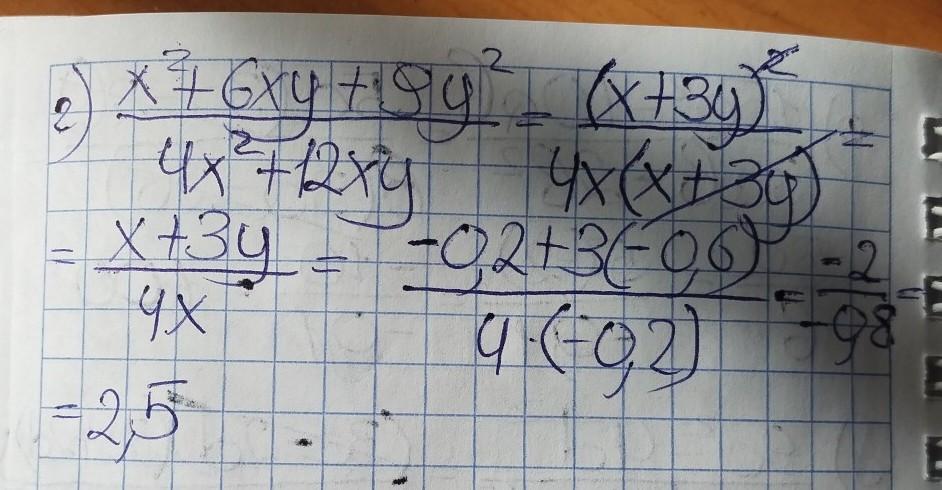 г) \frac{x^2+6xy+9y^2}{4x^2+12xy} = \frac{(x+3y)^2}{4x(x+3y)} =
= \frac{x+3y}{4x} = \frac{-0,2+3(-0,6)}{4·(-0,2)} = \frac{-2}{-0,8} =
= 2,5